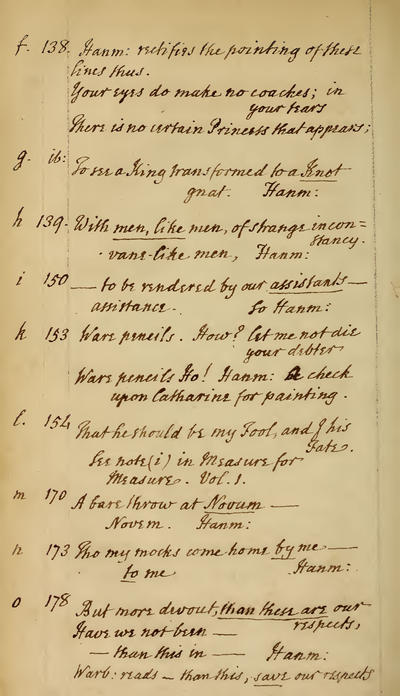 f. 138. Hanm: rectifies the pointing of these
lines thus.
Your eyes do make no coaches; in
your tears
There is no certain Princess that appears;
g. ib: To see a King transformed to a Knot
gnat. Hanm:
h 139. With men, like men, of strange incon=
stancy.
vane-like men, Hanm:
i 150 — to be rendered by our assistants —
assistance. So Hanm:
k 153 Ware pencils. How? let me not die
your debter
Ware pencils Ho! Hanm: A check
upon Catharine for painting.
l. 154 That he should be my Fool, and I his
Fate.
See note (i) in Measure for
Measure. Vol. 1.
m 170 A bare throw at Novum —
Novem. Hanm:
n 173 Tho my mocks come home by me —
to me Hanm:
o 178 But more devout, than these are our
respects,
Have we not been —
— than this in — Hanm:
Warb: reads — than this, save our respects